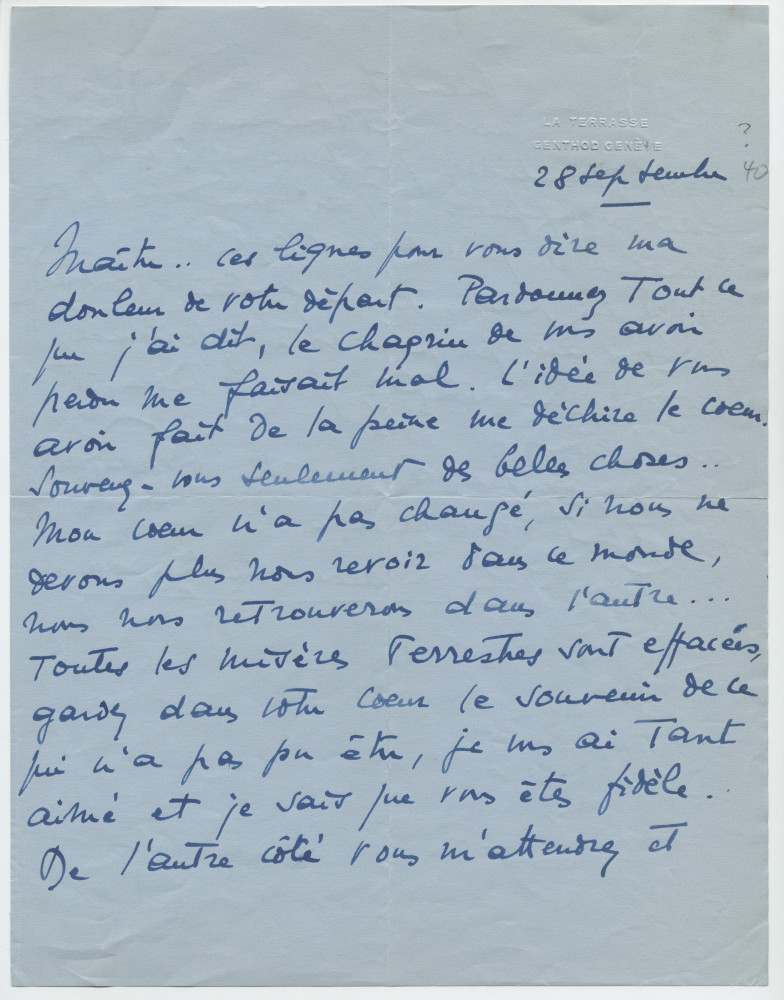 LA TERRASSE
GENTHOD GENÈVE
?
40
28 septembre
Maître.. ces lignes pour vous dire ma
douleur de votre départ. Pardonnez Tout ce
que j'ai dit, le chagrin de vous avoir
perdu me faisait mal. L'idée de vous
avoir fait de la peine me déchire le coeur.
Souvenez-vous seulement des belles choses..
Mon coeur n'a pas changé, si nous ne
devons plus nous revoir dans ce monde,
nous nous retrouverons dans l'autre...
Toutes les misères Terrestres sont effacées,
gardez dans votre coeur le souvenir de ce
qui n'a pas pu être, je vous ai Tant
aimé et je sais que vous êtes fidèle.
De l'autre côté vous m'attendrez et